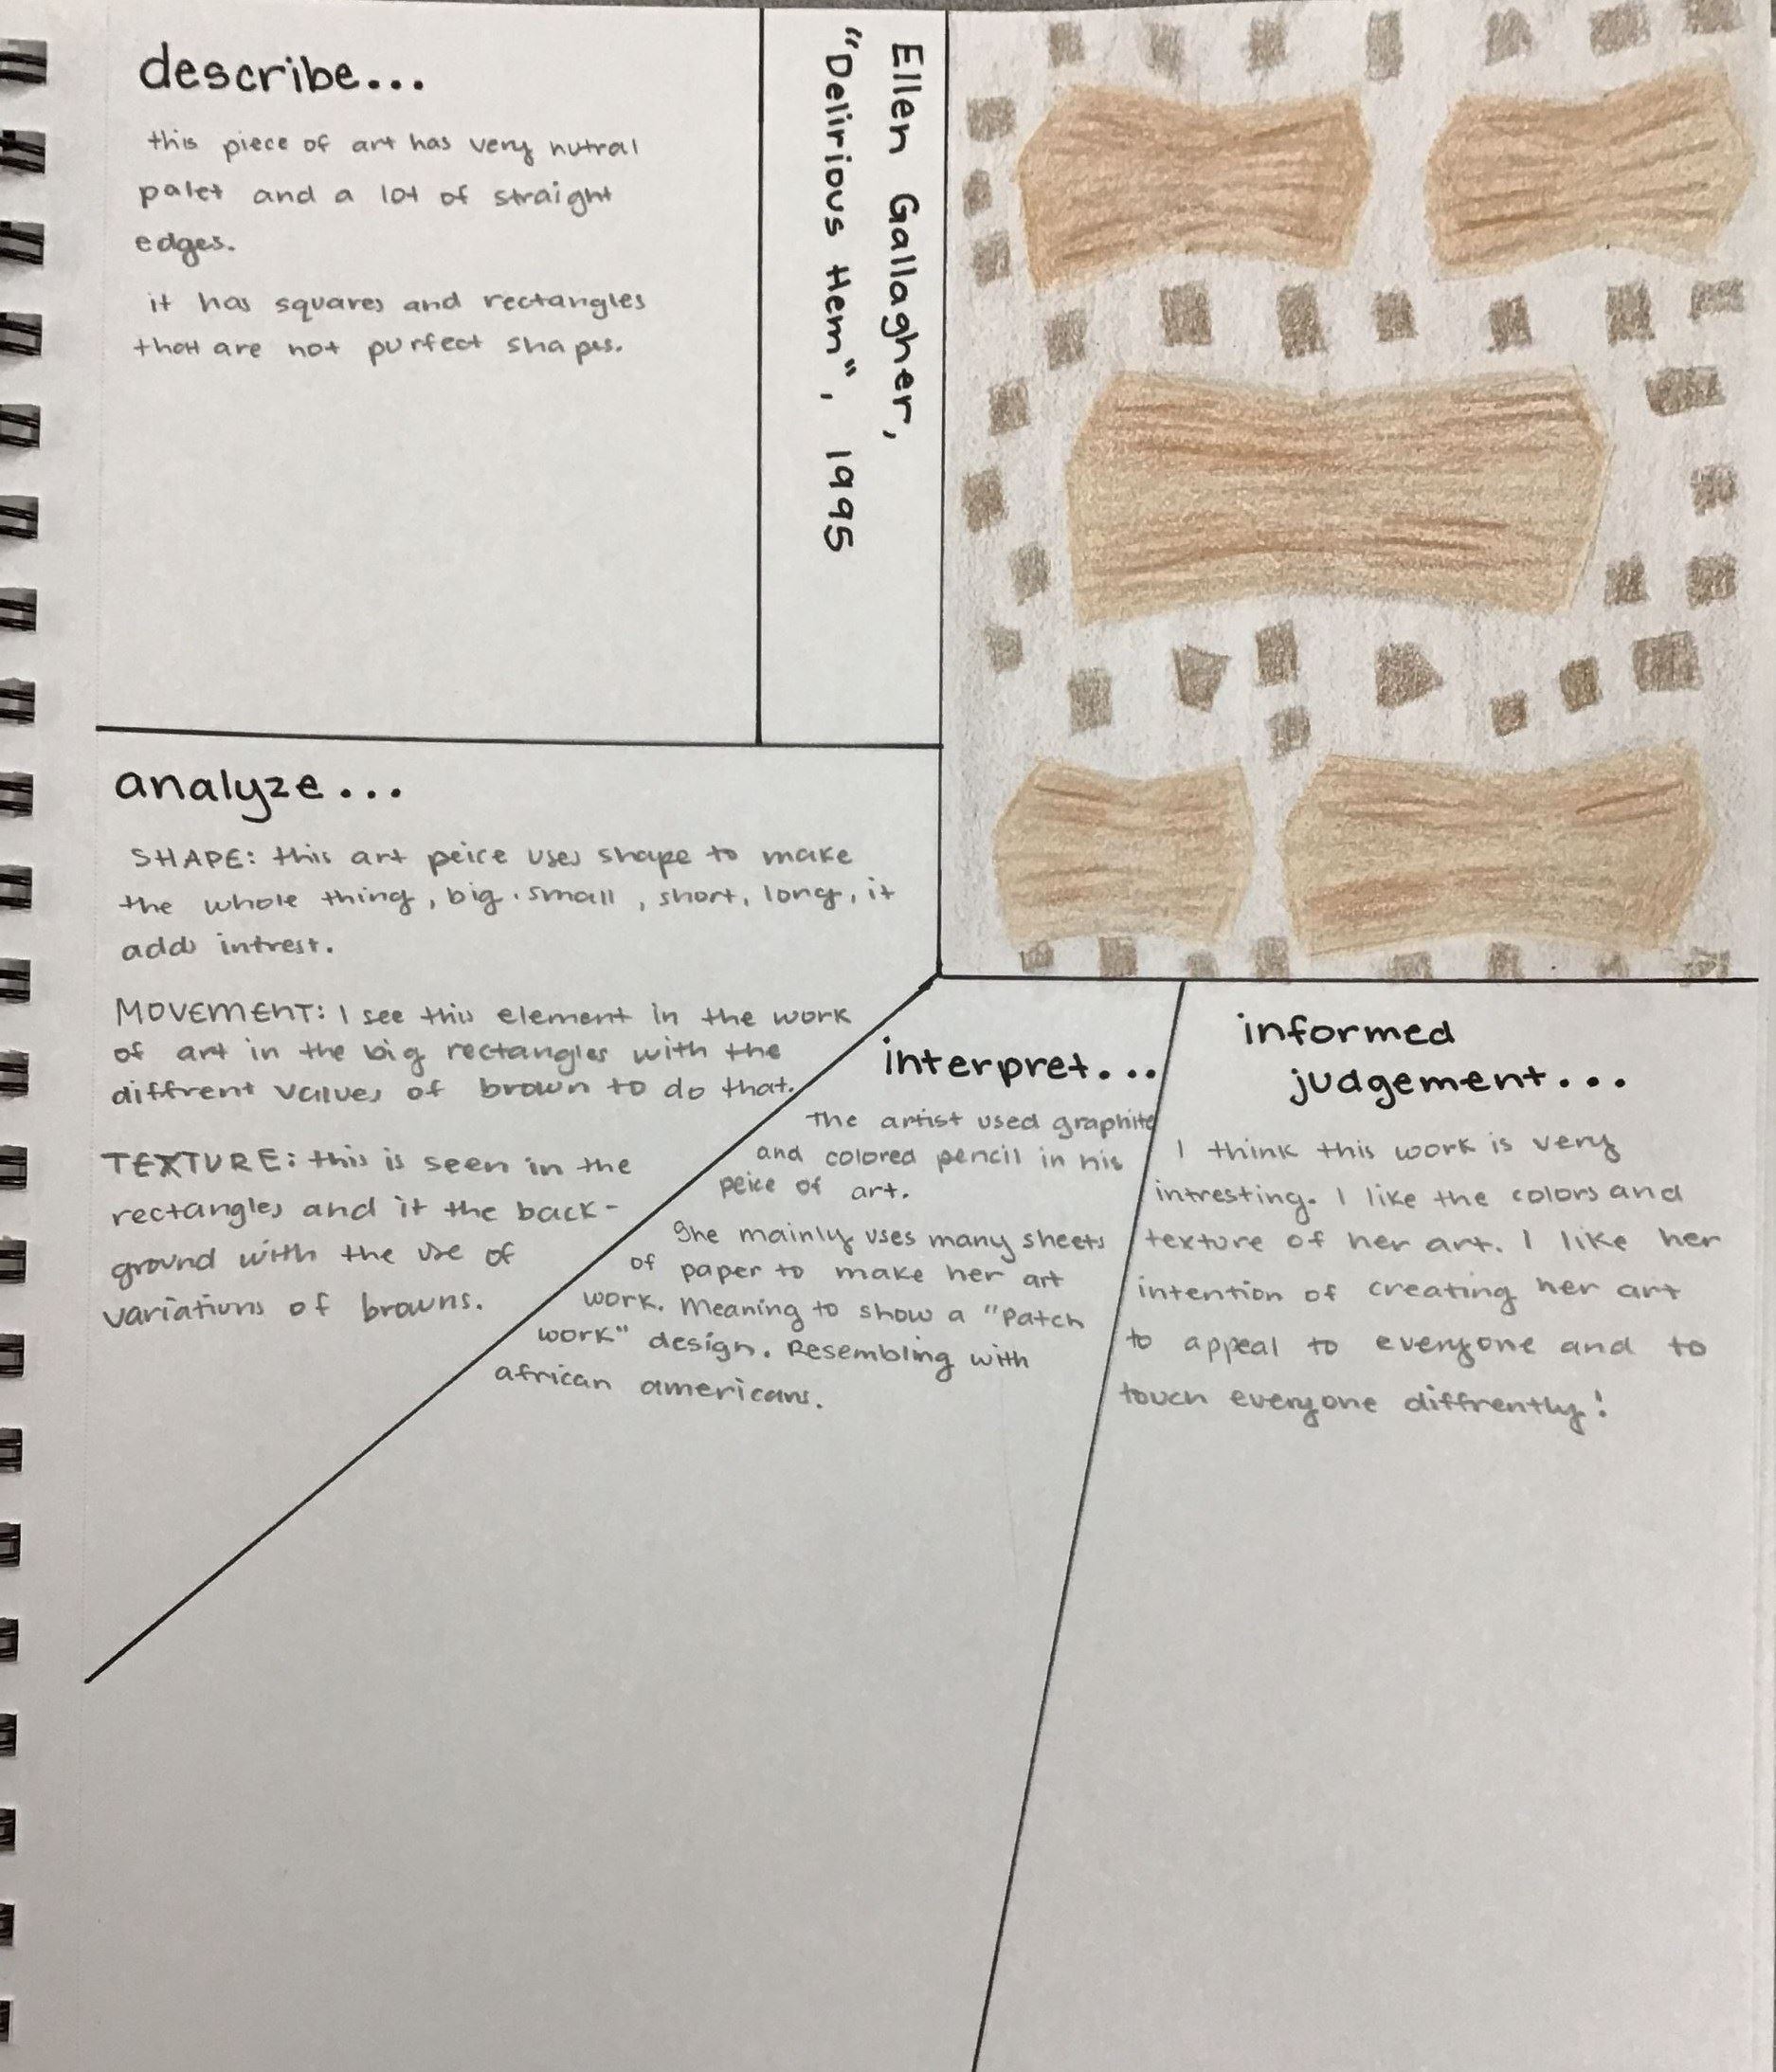 describe...
this piece of art has very nutral
palet and a lot of straight
edges.
it has squares and rectangles
that are not purfect shapes.
Ellen Gallagher,
"Delirious Hem", 1995
analyze...
SHAPE: this art peice uses shape to make
the whole thing, big, small, short, long, it
adds intrest.
MOVEMENT: I see this element in the work
of art in the big rectangles with the
diffrent values of brown to do that.
TEXTURE: this is seen in the
rectangles and it the back-
ground with the use of
variations of browns.
interpret...
The artist used graphite
and colored pencil in his
peice of art.
She mainly uses many sheets
of paper to make her art
work. Meaning to show a "patch
work" design. Resembling with
african americans.
informed
judgement...
I think this work is very
intresting. I like the colors and
texture of her art. I like her
intention of creating her art
to appeal to everyone and to
touch everyone diffrently!